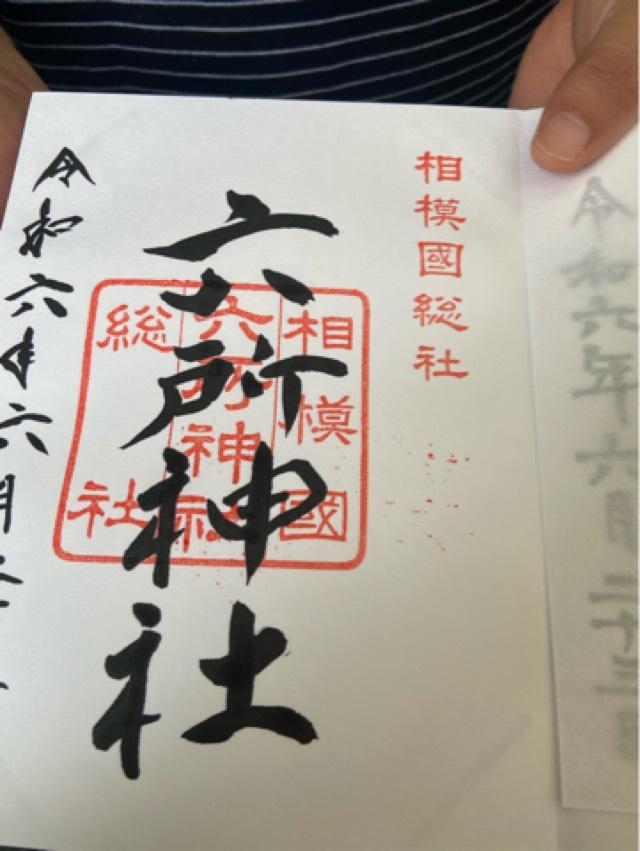 令和六年六月二十三日
相模國総社
六所神社
相模國
六所神社
総社
令和六年六月